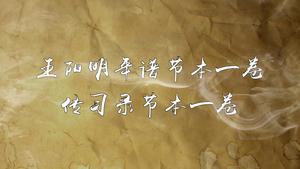 王阳明年谱节本一卷
传习录节本一卷